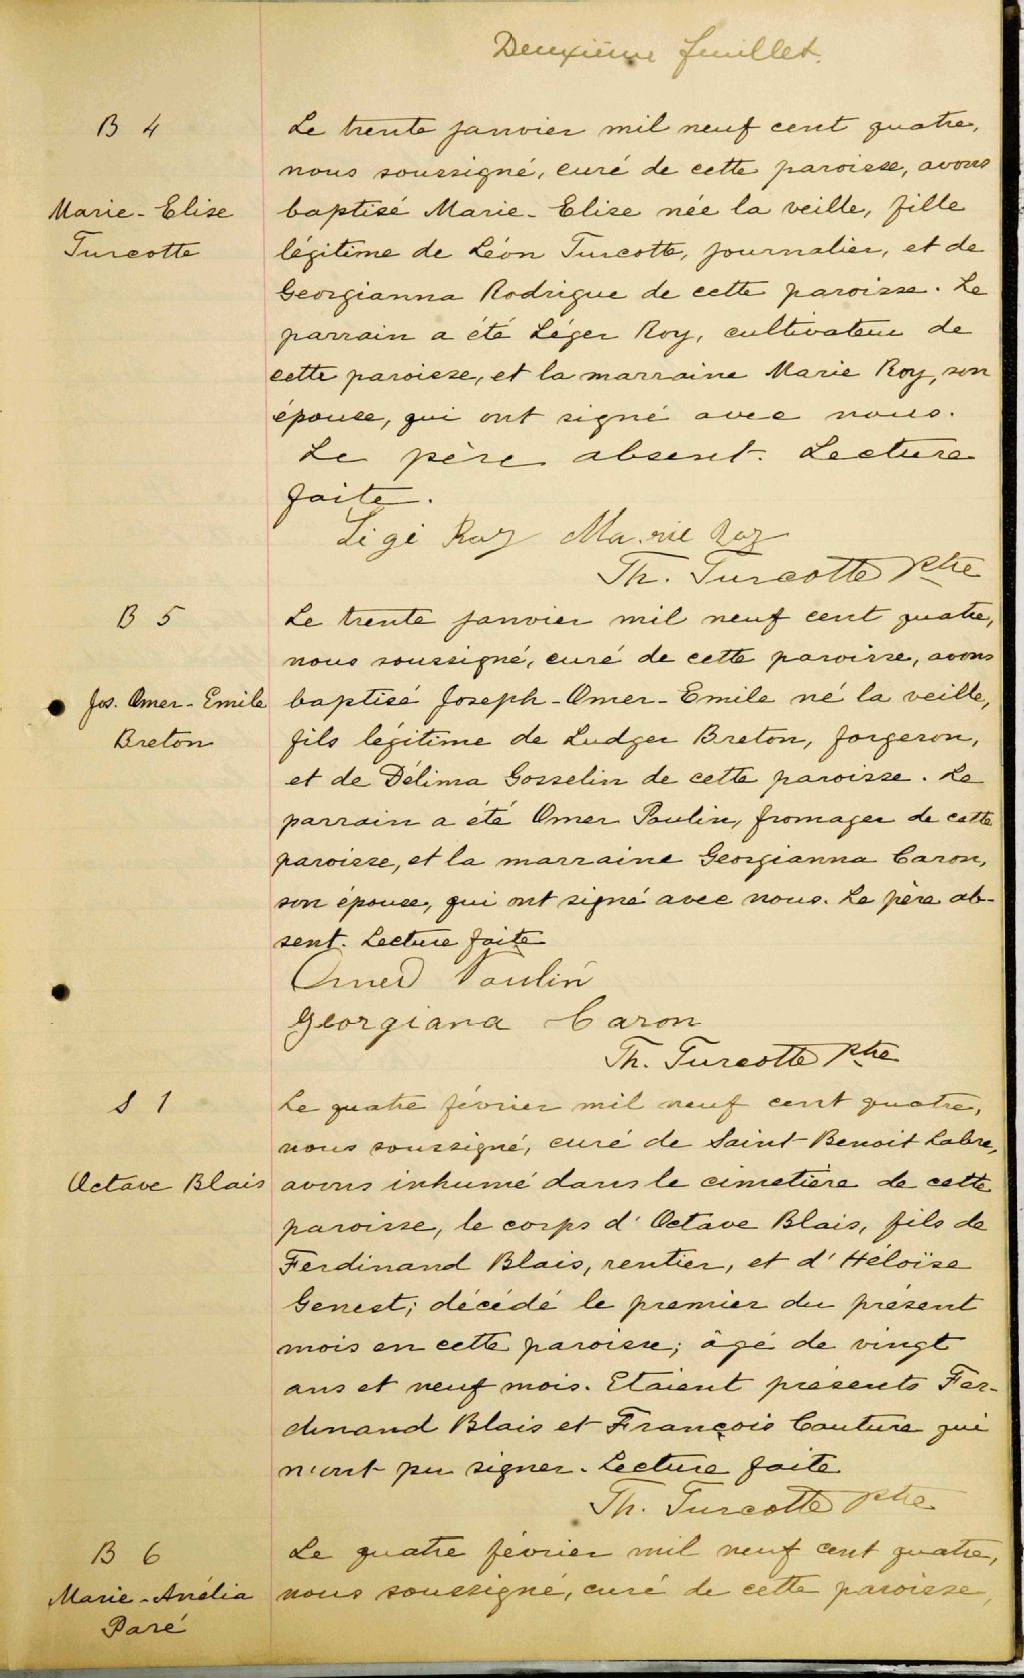 Deuxième feuillet.
B 4
Marie-Elise
Turcotte
Le trente janvier mil neuf cent quatre,
nous soussigné, curé de cette paroisse, avons
baptisé Marie-Elise née la veille, fille
légitime de Léon Turcotte, journalier, et de
Georgianna Rodrigue de cette paroisse. Le
parrain a été Léger Roy, cultivateur de
cette paroisse, et la marraine Marie Roy, son
épouse, qui ont signé avec nous.
Le père absent. Lecture
faite.
Ligé Roy Marie Roy
Th. Turcotte Ptre
B 5
Jos. Omer-Emile
Breton
Le trente janvier mil neuf cent quatre,
nous soussigné, curé de cette paroisse, avons
baptisé Joseph-Omer-Emile né la veille,
fils légitime de Ludger Breton, forgeron,
et de Délima Gosselin de cette paroisse. Le
parrain a été Omer Poulin, fromager de cette
paroisse, et la marraine Georgianna Caron,
son épouse, qui ont signé avec nous. Le père ab-
sent. Lecture faite
Omer Poulin
Georgiana Caron
Th. Turcotte Ptre
S 1
Octave Blais
Le quatre février mil neuf cent quatre,
nous soussigné, curé de Saint Benoit Labre,
avons inhumé dans le cimetière de cette
paroisse, le corps d'Octave Blais, fils de
Ferdinand Blais, rentier, et d'Héloïse
Genest; décédé le premier du présent
mois en cette paroisse; âgé de vingt
ans et neuf mois. Etaient présents Fer-
dinand Blais et François Couture qui
n'ont pu signer. Lecture faite
Th. Turcotte Ptre
B 6
Marie-Anélia
Paré
Le quatre février mil neuf cent quatre,
nous soussigné, curé de cette paroisse,